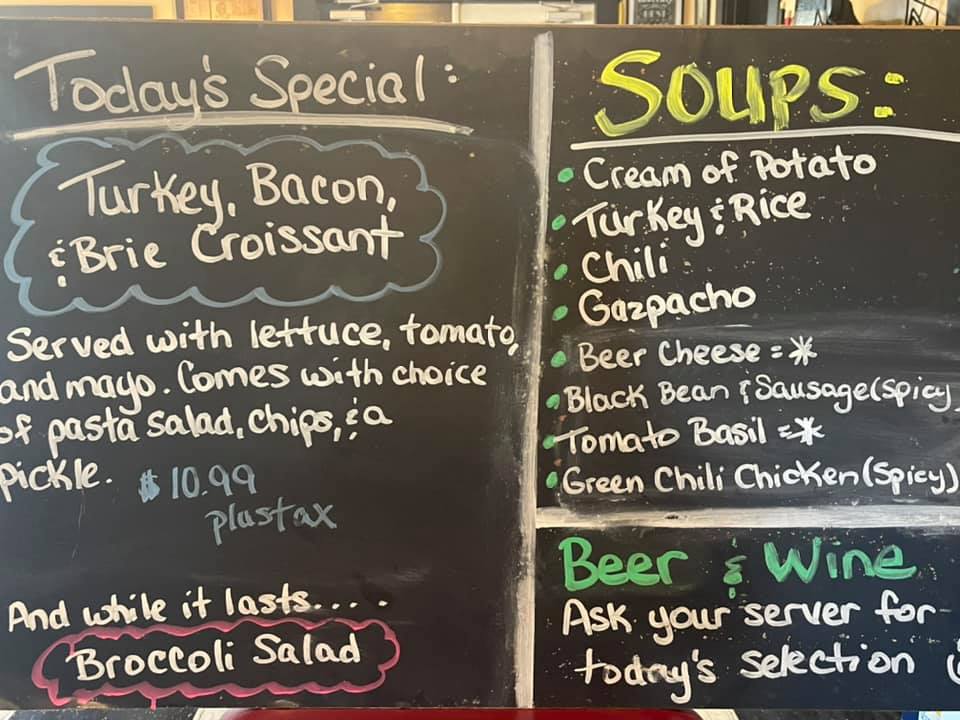 Today's Special:
Turkey, Bacon,
& Brie Croissant
Served with lettuce, tomato,
and mayo. Comes with choice
of pasta salad, chips, & a
pickle.
$10.99
plus tax
And while it lasts.....
Broccoli Salad
SOUPS:
• Cream of Potato
• Turkey & Rice
• Chili
• Gazpacho
• Beer Cheese = *
• Black Bean & Sausage (Spicy)
• Tomato Basil = *
• Green Chili Chicken (Spicy)
Beer & Wine
Ask your server for
today's selection